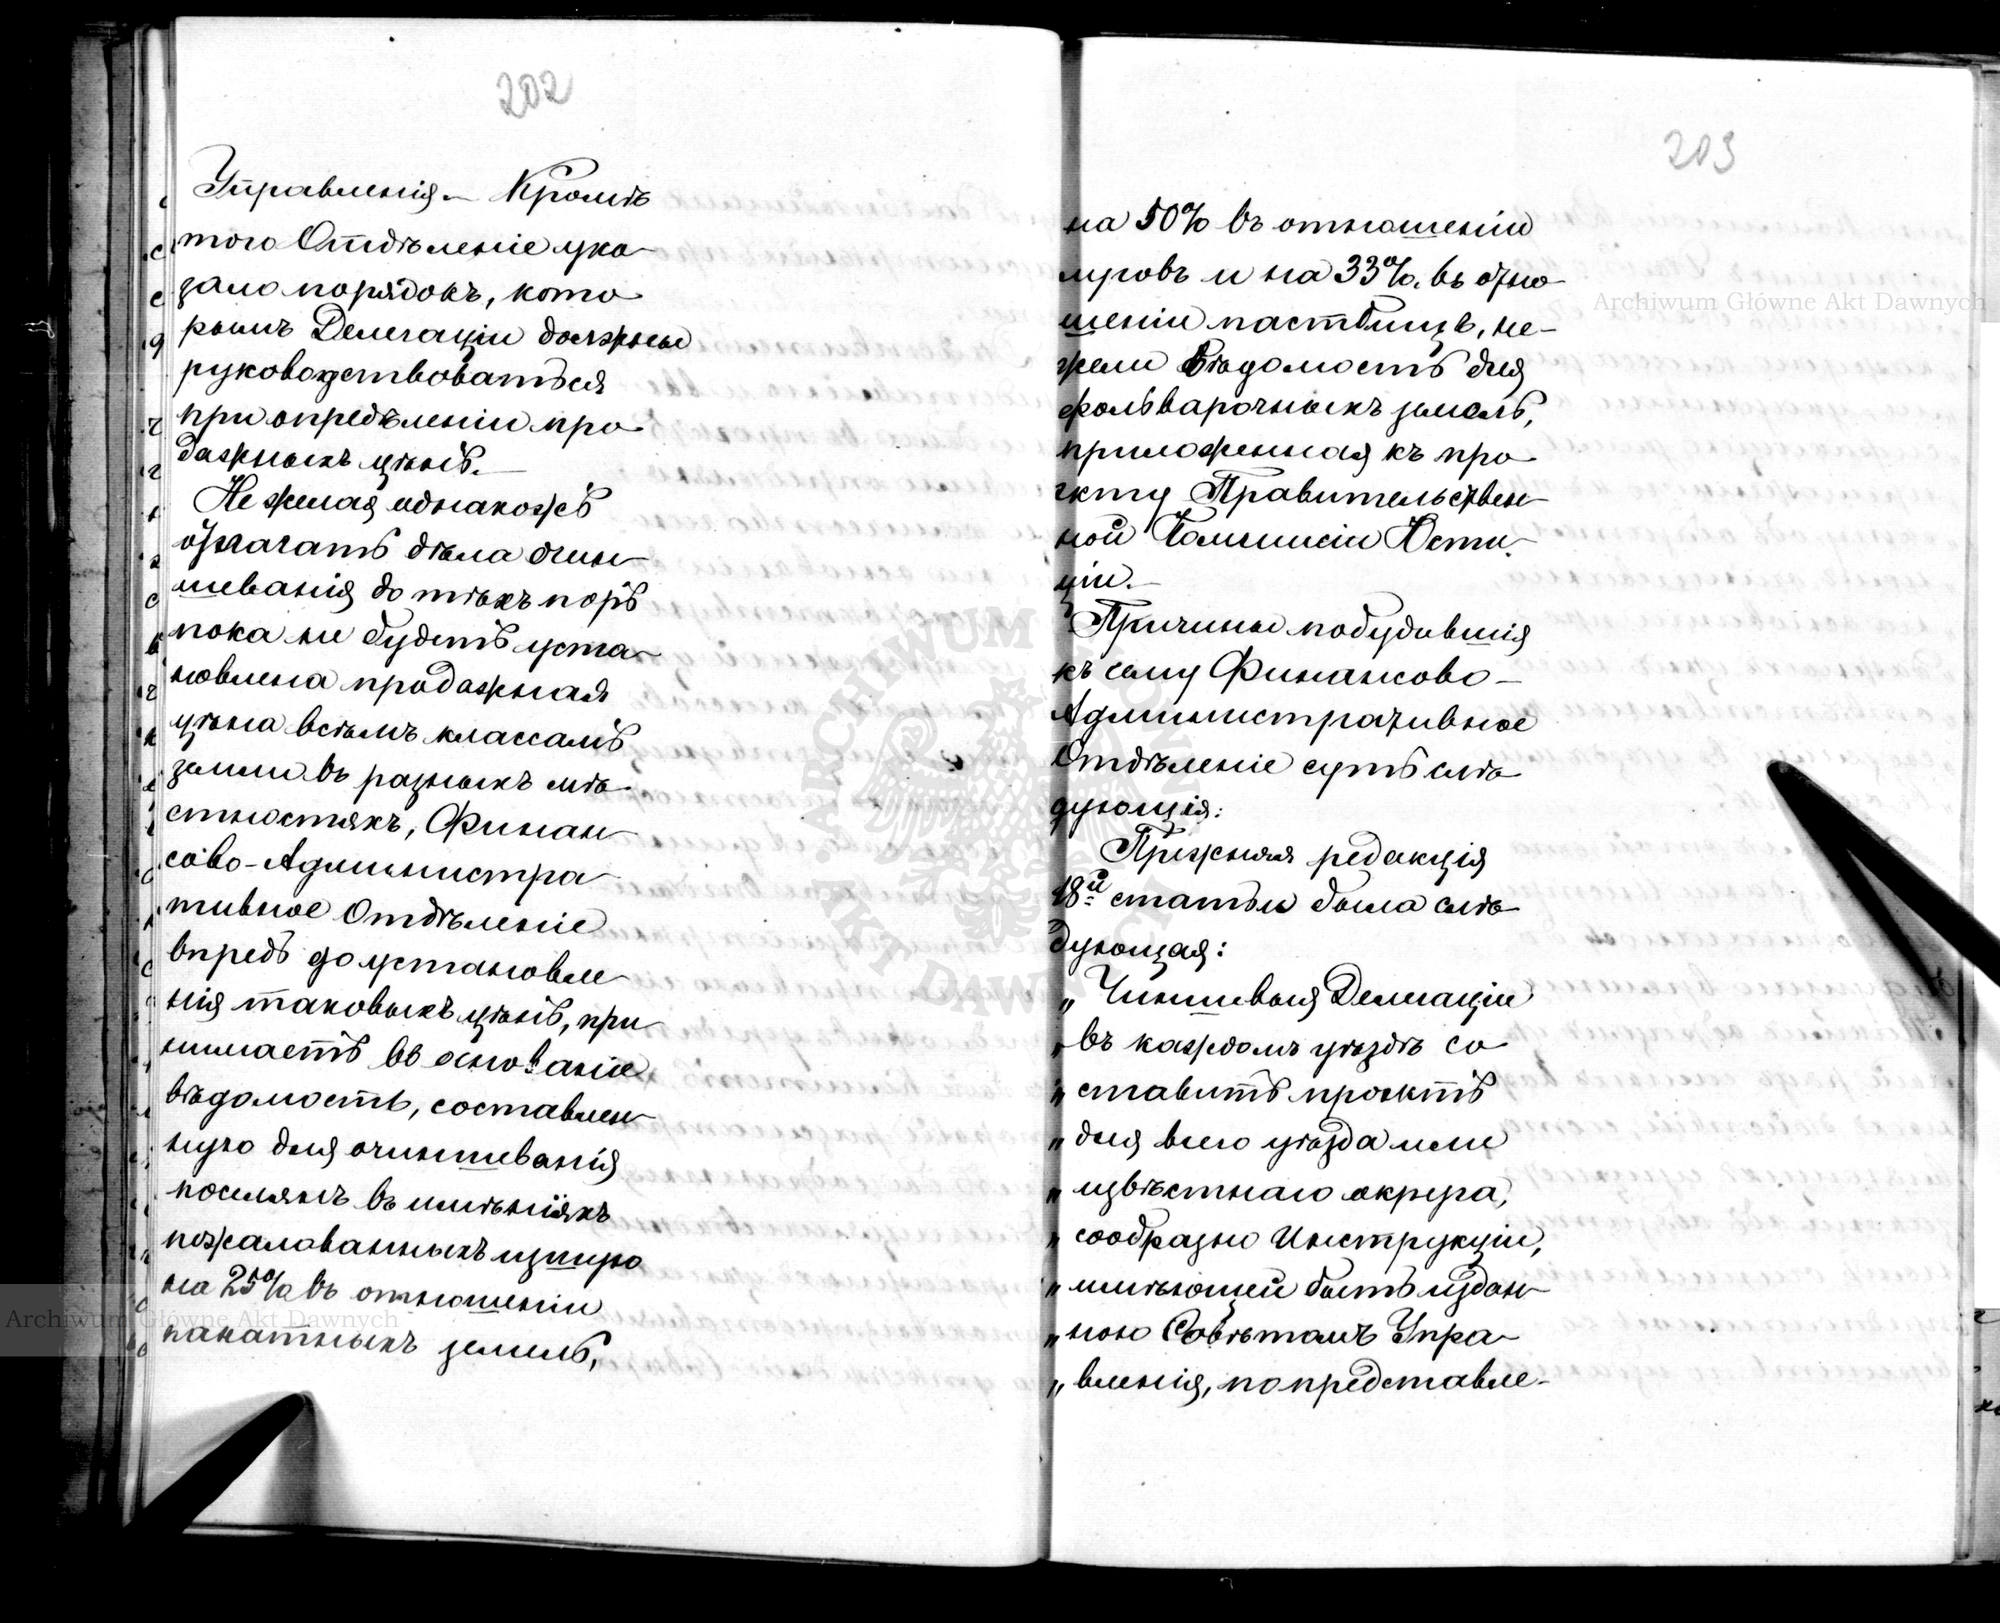 202
Управленія. – Кромѣ
того Отдѣленіе ука-
зало порядокъ, кото-
рымъ Делегаціи должны
руководствоваться
при опредѣленіи про-
дажныхъ цѣнъ. –
Не желая однакожъ
отлагать дѣла очин-
шеванія до тѣхъ поръ
пока не будетъ уста-
новлена продажная
цѣна всѣмъ классамъ
земли въ разныхъ мѣ-
стностяхъ, Финан-
сово-Администра-
тивное Отдѣленіе
впредь до установле-
нія таковыхъ цѣнъ, при-
нимаетъ въ основаніе
вѣдомость, составлен-
ную для очиншеванія
поселянъ въ имѣніяхъ
пожалованныхъ
на 25% въ отношеніи
пахатныхъ земель,
203
на 50% въ отношеніи
луговъ и на 33% въ отно-
шеніи пастбищъ, не-
жели вѣдомость для
фольварочныхъ земель,
приложенная къ про-
экту Правительствен-
ной Коммисіи Юсти-
ціи. –
Причины побудившія
къ сему Финансово-
Административное
Отдѣленіе суть слѣ-
дующія:
Прежняя редакція
18й статьи была слѣ-
дующая:
„ Чиншевыя Делегаціи
„ въ каждомъ уѣздѣ со-
„ ставитъ проэктъ
„ для всего уѣзда или
„ извѣстнаго округа,
„ сообразно Инструкціи,
„ имѣющей быть издан-
„ ною Совѣтомъ Упра-
„ вленія, по представле-
Archiwum Główne Akt Dawnych
Archiwum Główne Akt Dawnych
ARCHIWUM GŁÓWNE AKT DAWNYCH